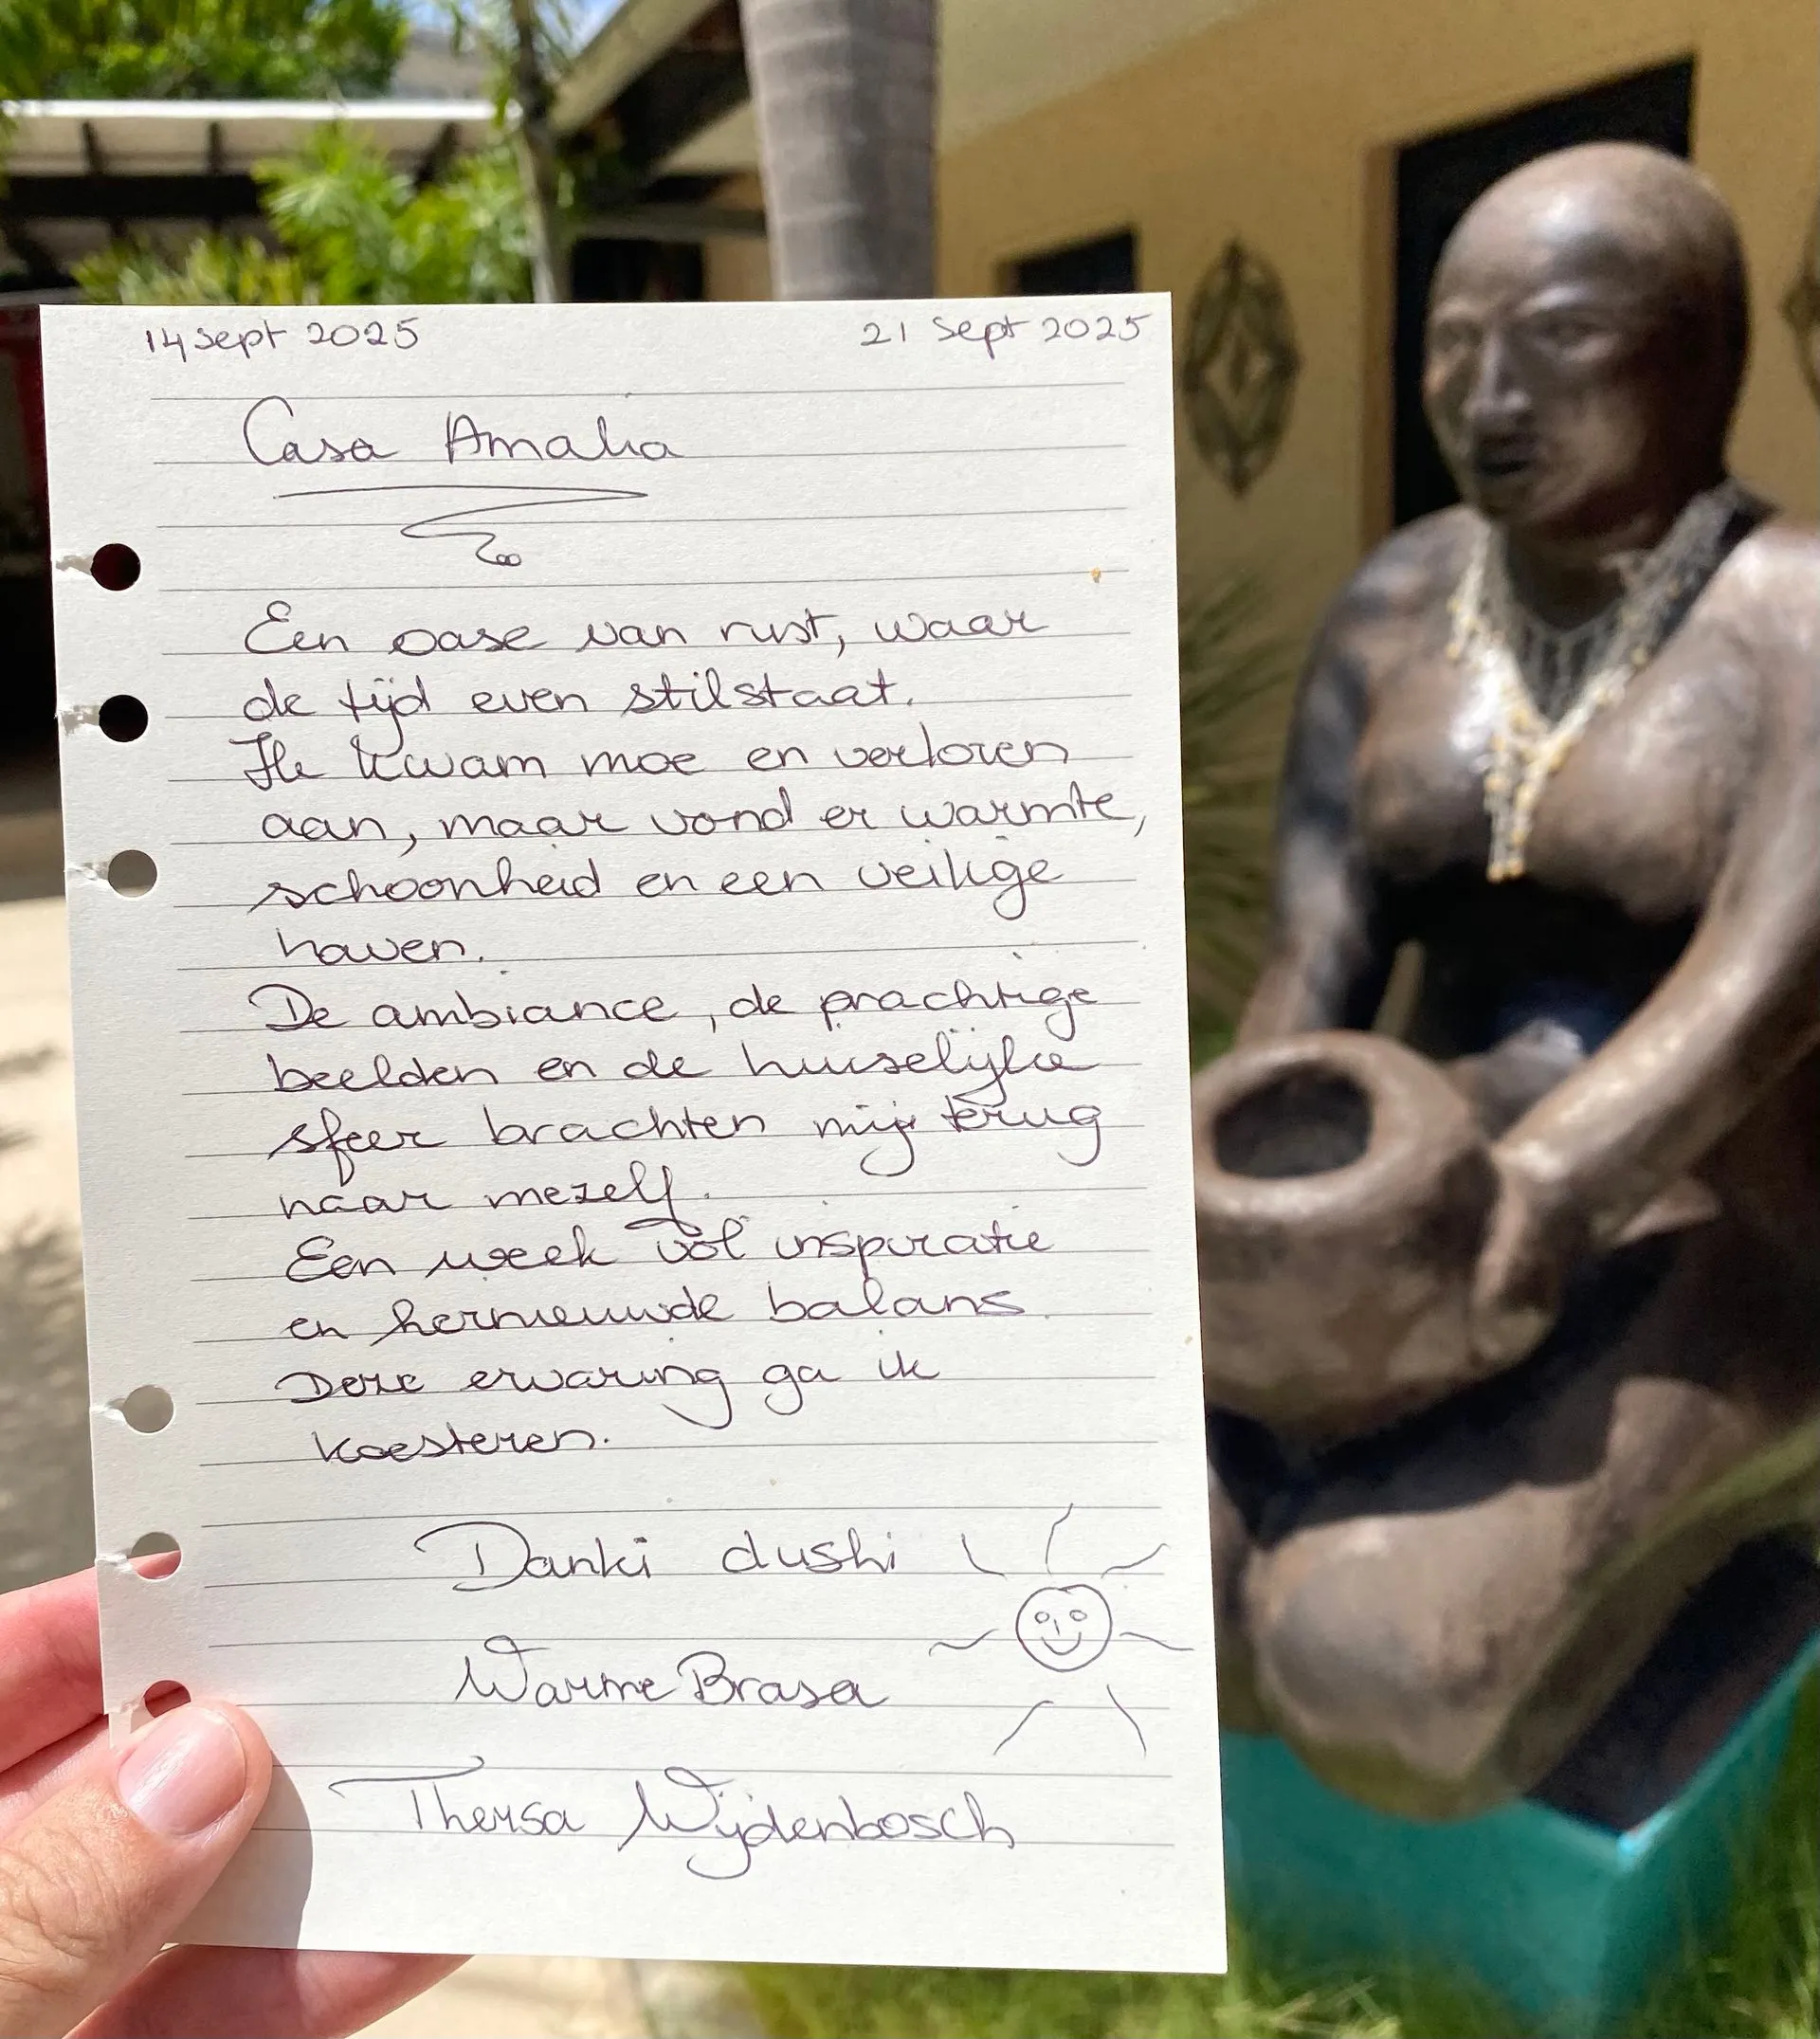 14 sept 2025 21 Sept 2025
Casa Amalia
Een oase van rust, waar
de tijd even stilstaat.
Ik kwam moe en verloren
aan, maar vond er warmte,
schoonheid en een veilige
haven.
De ambiance, de prachtige
beelden en de huiselijke
sfeer brachten mij terug
naar mezelf.
Een week vol inspiratie
en hernieuwde balans.
Deze ervaring ga ik
koesteren.
Danki dushi
Warme Brasa
Thersa Wijdenbosch